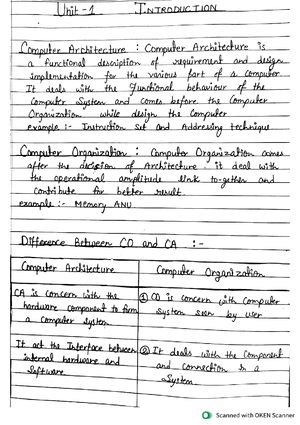 Unit-1 INTRODUCTION
Computer Architecture : Computer Architecture is
a functional description of requirement and design
implementation for the various part of a computer.
It deals with the functional behaviour of the
Computer System and comes before the Computer
Organization while design the Computer
example :- Instruction Set and Addressing technique
Computer Organization : Computer Organization comes
after the decision of Architecture. it deal with
the operational amplitude link to-gether and
contribute for better result
example :- Memory ANU
Difference Between CO and CA :-
Computer Architecture
Computer Organization
CA is concern with the
hardware component to form
a computer system
① CO is concern with Computer
System seen by user
It act the Interface between
internal hardware and
Software
② It deals with the Component
and connection in a
System
Scanned with OKEN Scanner